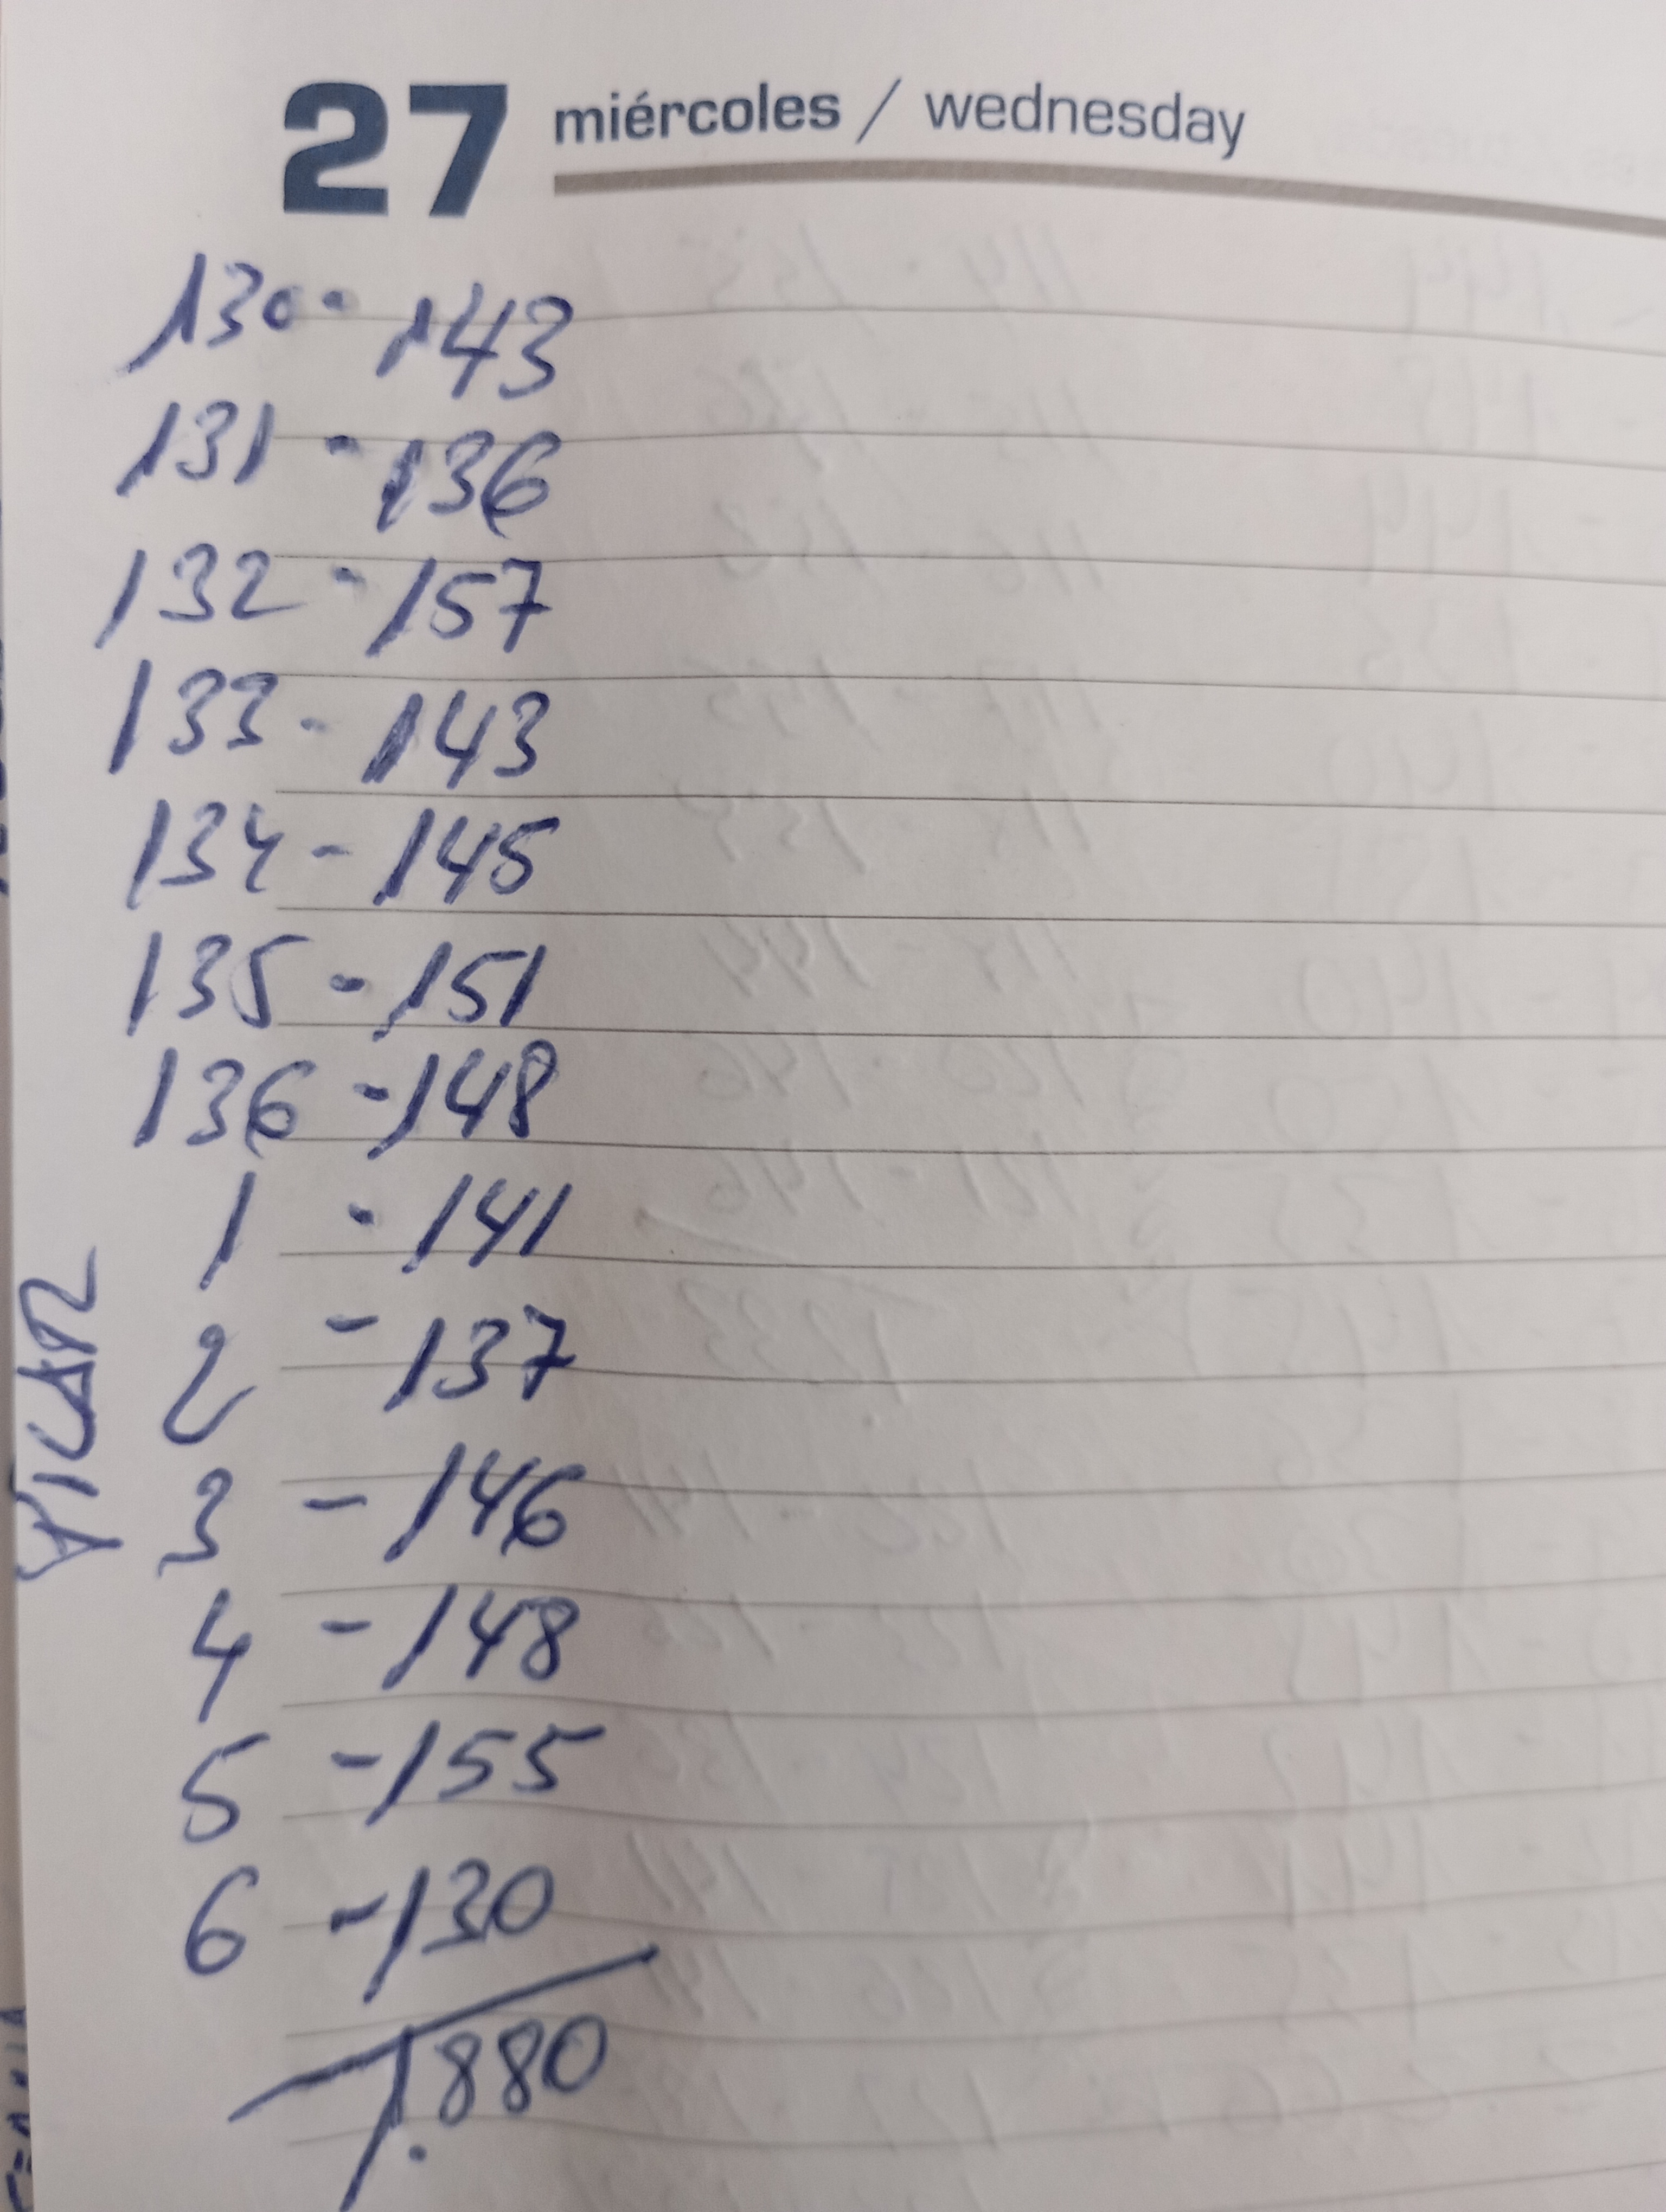 27 miércoles / wednesday
130 - 143
131 - 136
132 - 157
133 - 143
134 - 145
135 - 151
136 - 148
VICAR
1 - 141
2 - 137
3 - 146
4 - 148
5 - 155
6 - 130
1.880